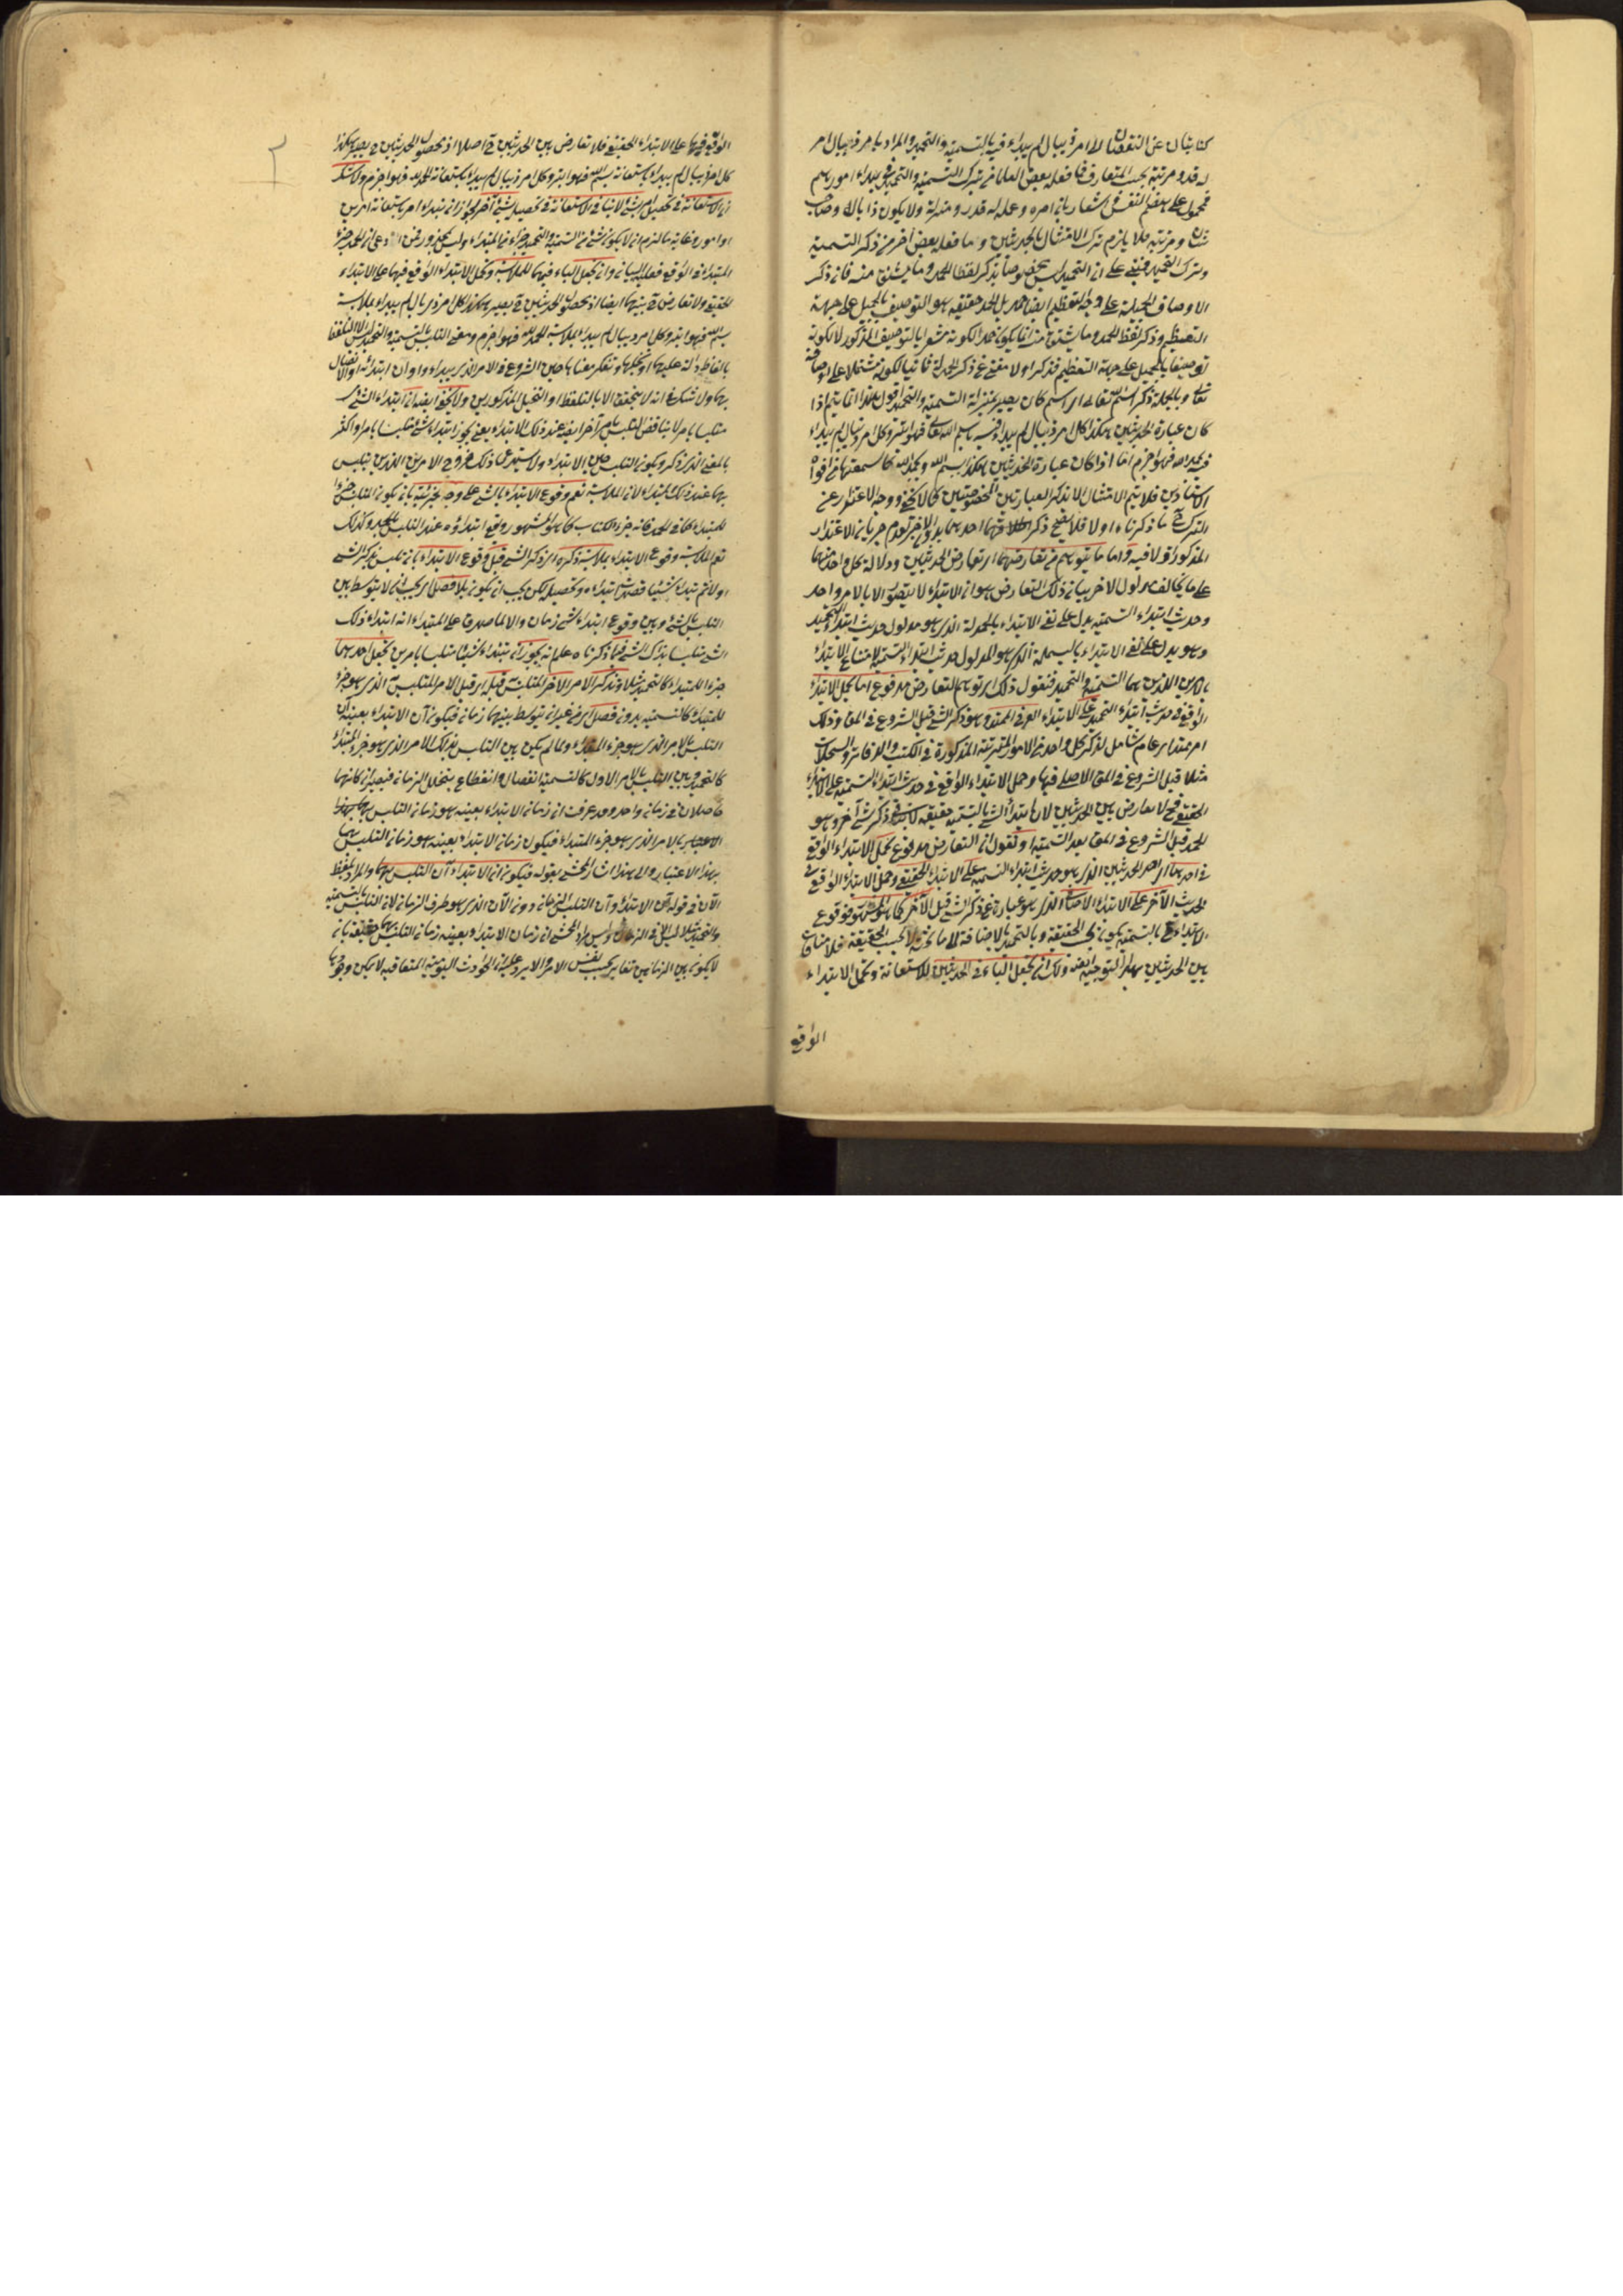 كنايتان عن النقصان اى كل امر ذى بال لم يبداء فيه بالتسمية والتحميد والمراد بامر ذى بال امر
له قدر ومرتبة بحسب المتعارف فما فعله بعض العلماء من ترك التسمية والتحميد فى يبداء امورهم
فمحمول على هضم النفس واشعار بان امره وعمله له قدر ومنزلة ولا يكون ذا بال وصاحب
شان ومرتبة فلا يلزم ترك الامتثال بالحديثين وما فعله بعض آخر من ذكر التسمية
وترك التحميد فمبنى على ان التحميد ليس مخصوصا بذكر لفظ الحمد وما يشتق منه فان ذكر
الاوصاف الجميلة على وجه التعظيم ايضا حمد بل الحمد حقيقة هو التوصيف بالجميل على جهة
التعظيم وذكر لفظ الحمد وما يشتق منه انما يكون حمدا لكونه مشعرا بالتوصيف المذكور لا لكونه
توصيفا بالجميل على جهة التعظيم فذكر اولا مغنى عن ذكر الحمدلة ثانيا لكونه مشتملا على اوصافه
تعالى وبالجملة ذكر اسم الله تعالى اى اسم كان يصير بمنزلة التسمية والتحميد اقول هذا انما يتم اذا
كان عبارة الحديثين هكذا كل امر ذى بال لم يبداء فيه باسم الله تعالى فهو ابتر وكل امر ذى بال لم يبداء
فيه بحمد الله فهو اجزم اما اذا كان عبارة الحديثين هكذا بسم الله وبالحمد لله كما سمعتها من افواه
الاستاذين فلا يتم الامتثال الا بذكر العبارتين المخصوصتين كما لا يخفى ووجه الاعتذار عن
الترك ح ما ذكرناه اولا فلا يصح ذكر احدهما بدون الآخر لعدم جريان الاعتذار
المذكور اولا فيه واما ما يتوهم من تعارضهما اى تعارض الحديثين ودلالة كل واحد منهما
على ما يخالف مدلول الاخر بيان ذلك التعارض هو ان الابتداء لا يتصور الا بالامر واحد
وحديث ابتداء التسمية يدل على نفى الابتداء بالحمدلة الذى هو مدلول حديث ابتداء التحميد
وهو يدل على نفى الابتداء بالبسملة الذى هو المدلول حديث ابتداء التسمية لامتناع الابتداء
بالامرين اللذين هما التسمية والتحميد فنقول ذلك اى توهم التعارض مدفوع اما بحمل الابتداء
الواقع فى حديث ابتداء التحميد على الابتداء العرفى الممتد وهو ذكر الشئ قبل الشروع فى المق وذلك
امر ممتد امر عام شامل لذكر كل واحد من الامور المترتبة المذكورة فى الكتب والدفاتر والسجلات
مثلا قبل الشروع فى المق الاصلى فيها وحمل الابتداء الواقع فى حديث ابتداء التسمية على الابتداء
الحقيقى فح لا تعارض بين الحديثين لان ابتداء الشئ بالتسمية حقيقة لا ينافى ذكر شئ آخر وهو
الحمد قبل الشروع فى المق بعد التسمية او نقول ان التعارض مدفوع بحمل الابتداء الواقع
فى احدهما اى احد الحديثين الذى هو حديث ابتداء التسمية على الابتداء الحقيقى وحمل الابتداء الواقع فى
الحديث الآخر على الابتداء الاضافى الذى هو عبارة عن ذكر الشئ قبل الآخر كما هو المشهور فوقوع
الابتداء ح بالتسمية يكون بحسب الحقيقة وبالتحميد بالاضافة الى ما بحثه لا بحسب الحقيقة فلا منافات
بين الحديثين بهذا التوجيه ايضا ولك ان تجعل الباء فى الحديثين للاستعانة وتحمل الابتداء
الواقع
الواقع فيهما على الابتداء الحقيقى فلا تعارض بين الحديثين ح اصلا اذ محصول الحديثين ح يصير هكذا
كل امر ذى بال لم يبداء باستعانة بسم الله فهو ابتر وكل امر ذى بال لم يبداء باستعانة الحمد لله فهو اجزم ولا شك
ان الاستعانة فى تحصيل امر بشئ لا ينافى الاستعانة فى تحصيله بشئ آخر لجواز ان يبتداء امر باستعانة امرين
او امور وغاية ما لزم ان لا يكون شئ من التسمية والتحميد جزاء من المبتداء
المبتداء فى الواقع فعليه البيان وان تجعل الباء فيهما للملابسة وتحمل الابتداء الواقع فيهما على الابتداء
الحقيقى ولا تعارض ح بينهما ايضا اذ محصول الحديثين ح يصير هكذا كل امر ذى بال لم يبداء بملابسة
بسم الله فهو ابتر وكل امر ذى بال لم يبداء بملابسة الحمد لله فهو اجزم ومعنى التلبس بالتسمية والتحميد ليس الا التلفظ
بالفاظ دالة عليهما او تخيلهما وتفكر معناهما حين الشروع فى الامر الذى يبداء
بهما ولا شك فى انه لا يتحقق الا بالتلفظ او التخيل المذكورين ولا يخفى ايضا ان ابتداء الشئ
متلبسا بامر لا يناقض التلبس بامر آخر ايضا عند ذلك الابتداء يعنى يجوز ابتداء شئ متلبسا بامر واكثر
بالمعنى الذى ذكر ويكون التلبس حين الابتداء ولا يستدعى ذلك خروج الامرين الذين يتلبس
بهما عند ذلك المبتداء لان الملابسة تعم وقوع الابتداء بالشئ على وجه الجزئية بان يكون التلبس جزءا
للمبتداء كما فى الحمد فانه جزء الكتاب كما هو المشهور وقع ابتداؤه عند التلبس بالحمد وكذلك
تعم الملابسة وقوع الابتداء بملابسة ذكره اى ذكر الشئ قبل وقوع الابتداء بان تلبس بذكر الشئ
اولا ثم تبداء شيئا قصدت ابتداءه وتحصيله لكن يجب ان يكون بلا فصل اى يجب ان لا يتوسط بين
التلبس بالشئ وبين وقوع ابتداء شئ زمان والا لما صدق على المبتداء انه ابتداء ذلك
الشئ متلبسا بذلك الشئ فبما ذكرناه علم انه يجوز ان تبتداء شيئا متلبسا بامرين تجعل احدهما
جزءا للمبتداء كالتحميد مثلا وتذكر الامر الآخر المتلبس قبله اى قبل الامر المتلبس الذى هو جزء
للمبتداء كالتسمية بدون فصل اى من غير ان يتوسط بينهما زمان فيكون آن الابتداء بعينه آن
التلبس بالامر الذى هو جزء المبتداء ولما لم يكن بين التلبس بذلك الامر الذى هو جزء المبتداء
كالتحميد وبين التلبس بالامر الاول كالتسمية انفصال وانقطاع بتخلل الزمان فيصيران كانهما
حاصلان فى زمان واحد وقد عرفت ان زمان الابتداء بعينه هو زمان التلبس بهما بهذا
الاعتبار بالامر الذى هو جزء المبتداء فيكون زمان الابتداء بعينه هو زمان التلبس بهما
بهذا الاعتبار والى هذا اشار المحشى بقوله فيكون آن الابتداء آن التلبس بهما والمراد بلفظ
الآن فى قوله آن الابتداء وآن التلبس الزمان دون الآن الذى هو طرف الزمان لان التلبس بالتسمية
والتحميد مثلا ليس الا فى الزمان وليس مراد المحشى ان زمان الابتداء بعينه زمان التلبس بهما حقيقة بان
لا يكون بين الزمانين تغاير بحسب نفس الامر والا يرد عليه ان الحوادث اليومية المتعاقبة لا يمكن وجودها